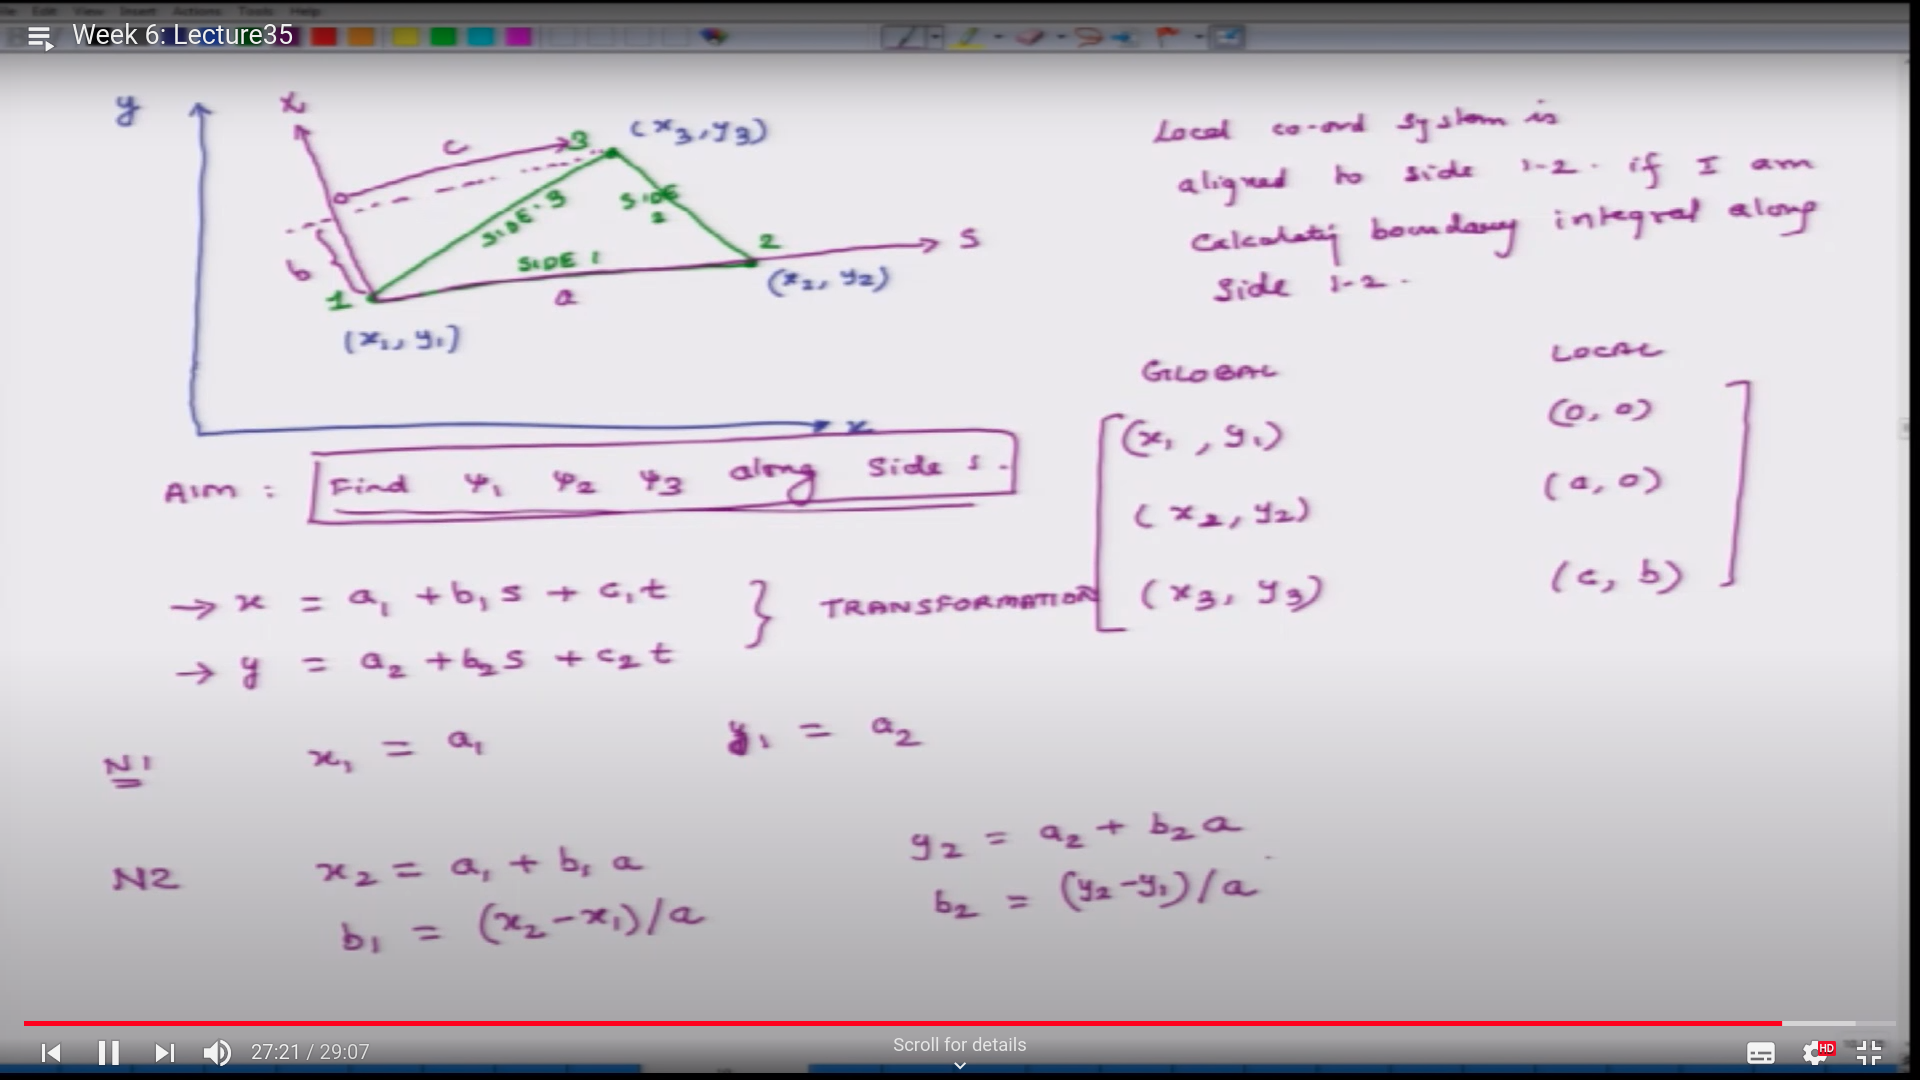 File Edit View Insert Actions Tools Help
Week 6: Lecture35
y
t
c
3
(x3, y3)
SIDE-3
SIDE
2
b
SIDE 1
2
S
1
a
(x2, y2)
(x1, y1)
x
Local co-ord system is
aligned to side 1-2. if I am
Calculatij boundary integral along
Side 1-2.
GLOBAL LOCAL
(x1, y1) (0, 0)
(x2, y2) (a, 0)
(x3, y3) (c, b)
AIM : Find ψ1 ψ2 ψ3 along Side 1.
→ x = a1 + b1 s + c1 t
} TRANSFORMATION
→ y = a2 + b2 s + c2 t
N1 x1 = a1 y1 = a2
N2 x2 = a1 + b1 a y2 = a2 + b2 a
b1 = (x2 - x1)/a b2 = (y2 - y1)/a
27:21 / 29:07
Scroll for details
HD